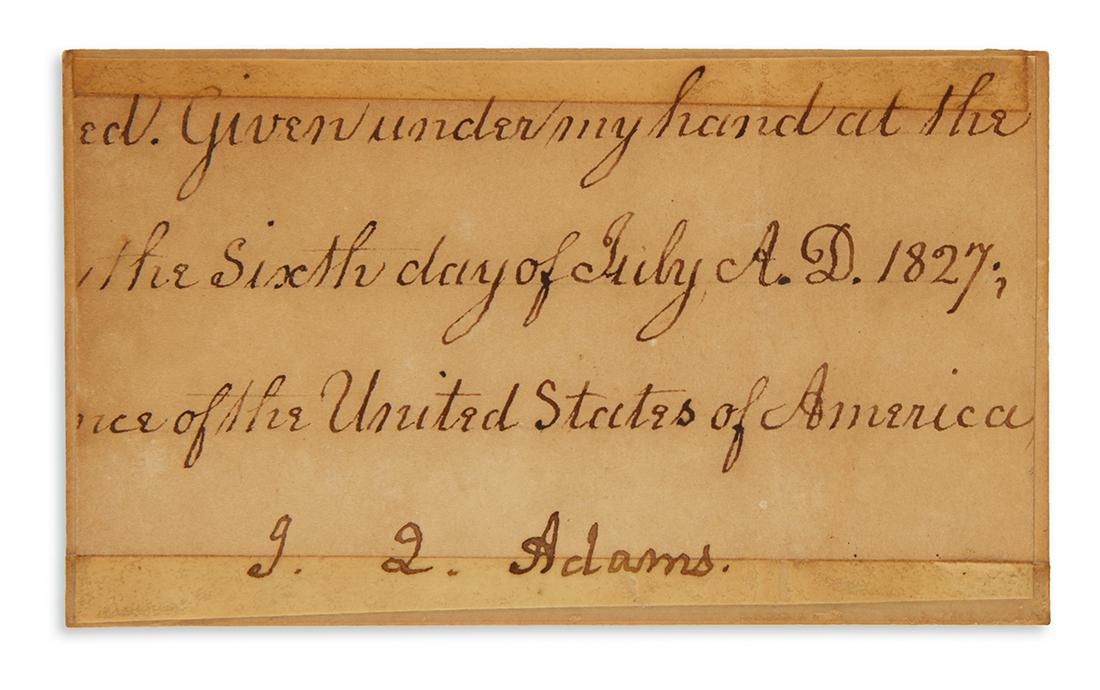 ed. Given under my hand at the
the Sixth day of July A. D. 1827;
nce of the United States of America
J. Q. Adams.